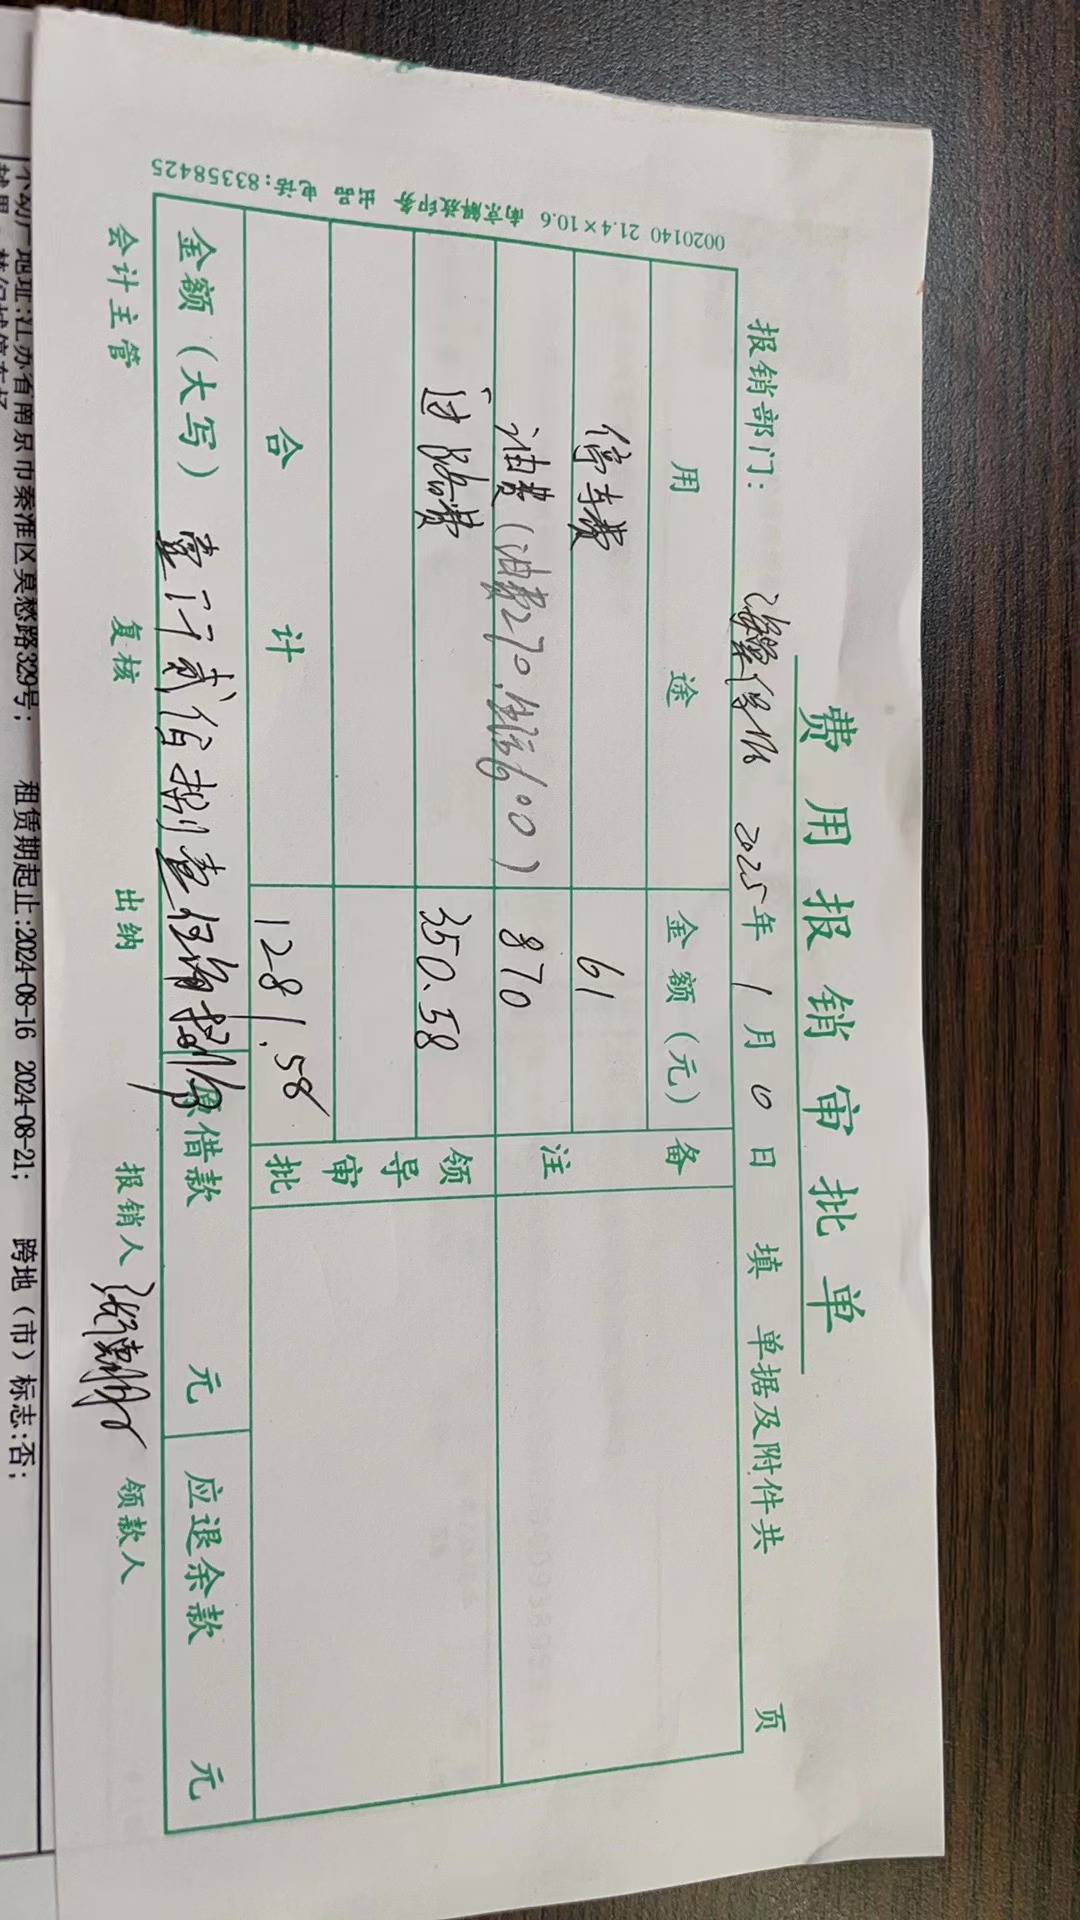 费用报销审批单
报销部门： 2025年1月10日填 单据及附件共 页
用途 金额（元） 备注
停车费 61
油费（油费270， 600） 870
过路费 350.58
领导审批
合计 1281.58
金额（大写） 壹仟贰佰捌壹伍角捌分 原借款 元 应退余款 元
会计主管 复核 出纳 报销人 领款人
0020140 21.4×10.6 南京解放印务 出品 电话：83358425
不动产地址:江苏省南京市秦淮区莫愁路329号； 租赁期起止:2024-08-16 2024-08-21； 跨地（市）标志:否；